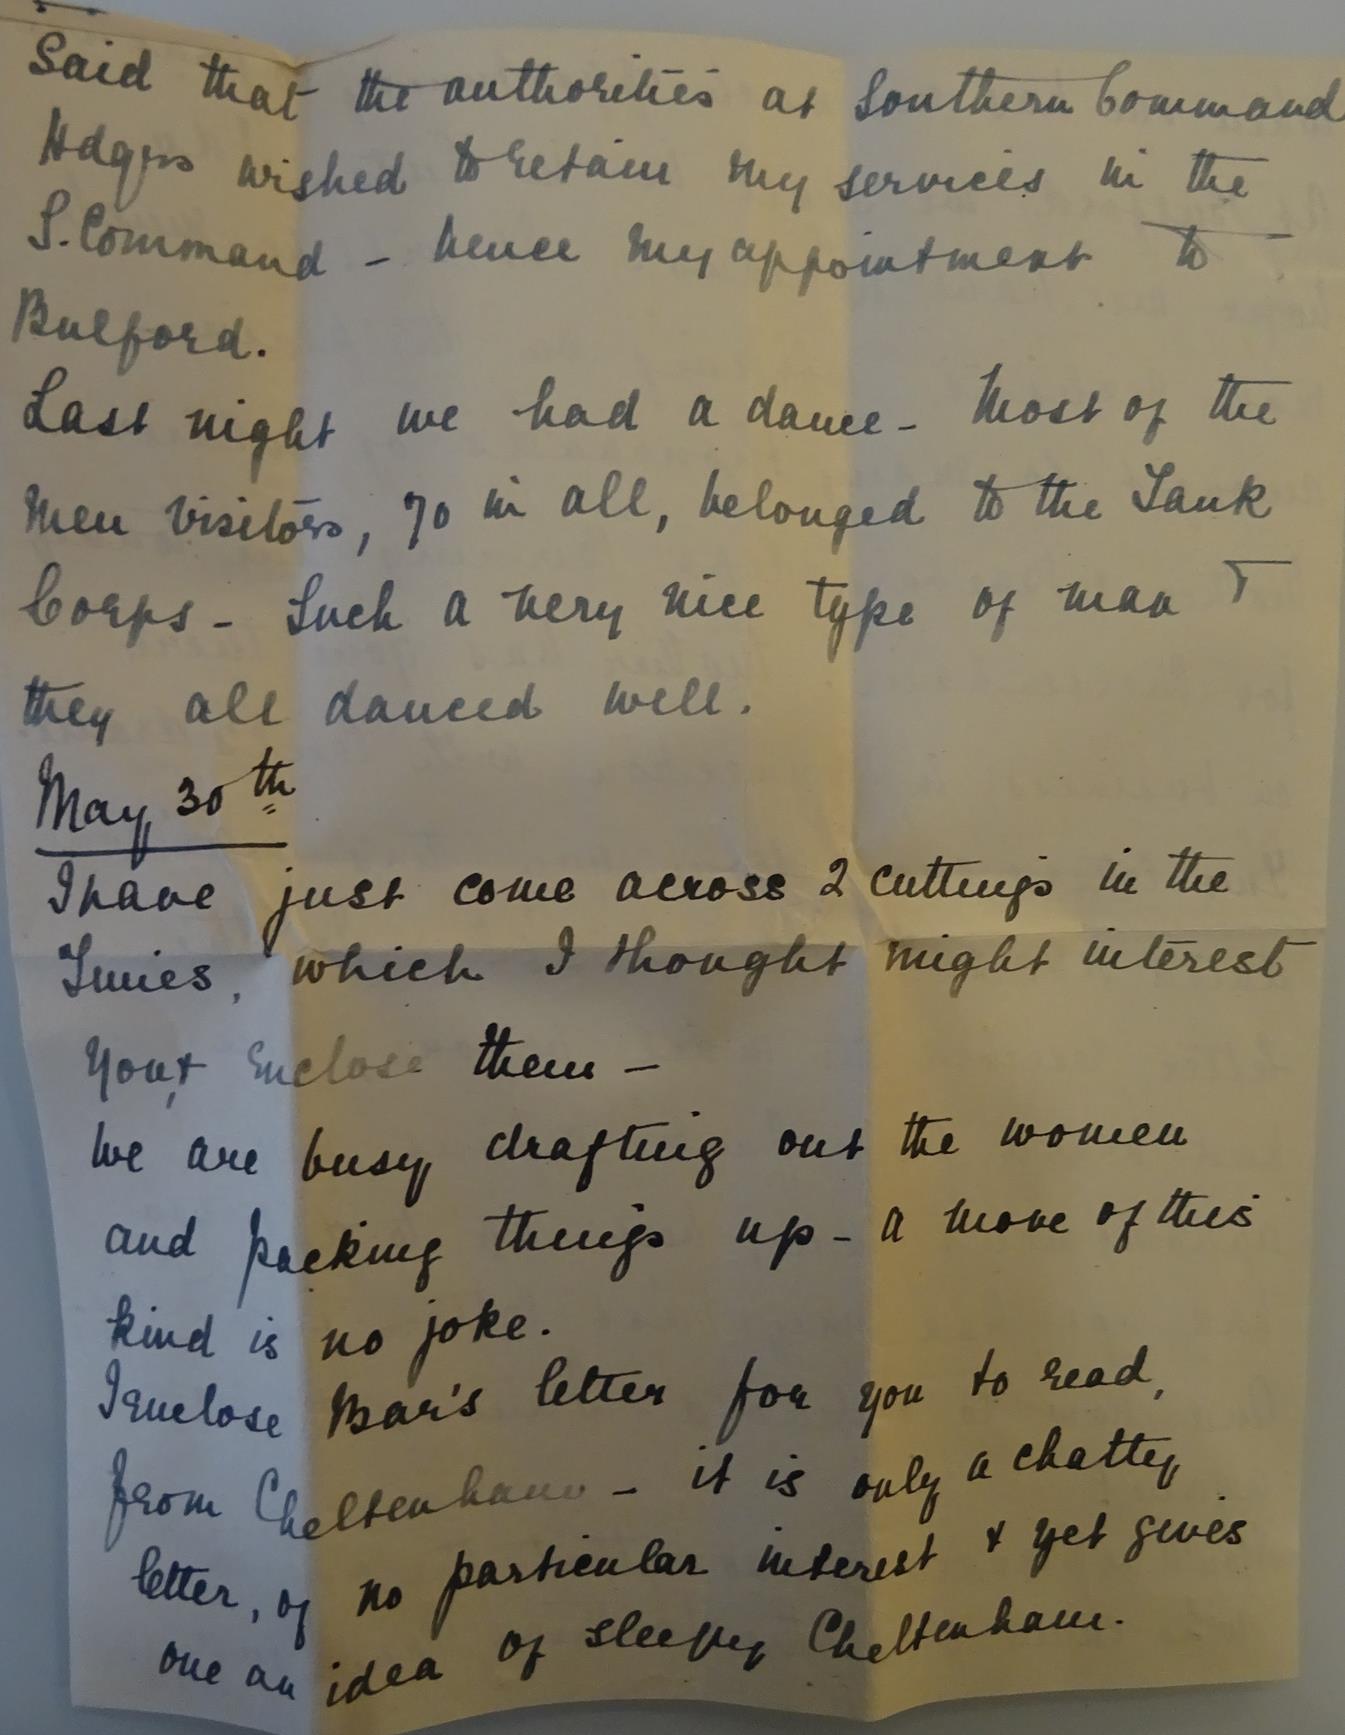 Said that the authorities at Southern Command
Hdqrs wished to retain my services in the
S. Command - hence my appointment to
Bulford.
Last night we had a dance - Most of the
men visitors, 70 in all, belonged to the Tank
Corps - Such a very nice type of man +
they all danced well.
May 30th
I have just come across 2 cuttings in the
Times, which I thought might interest
you, + enclose them -
We are busy drafting out the women
and packing things up - a move of this
kind is no joke.
I enclose Bar's letter for you to read,
from Cheltenham - it is only a chatty
letter, of no particular interest + yet gives
one an idea of sleepy Cheltenham.